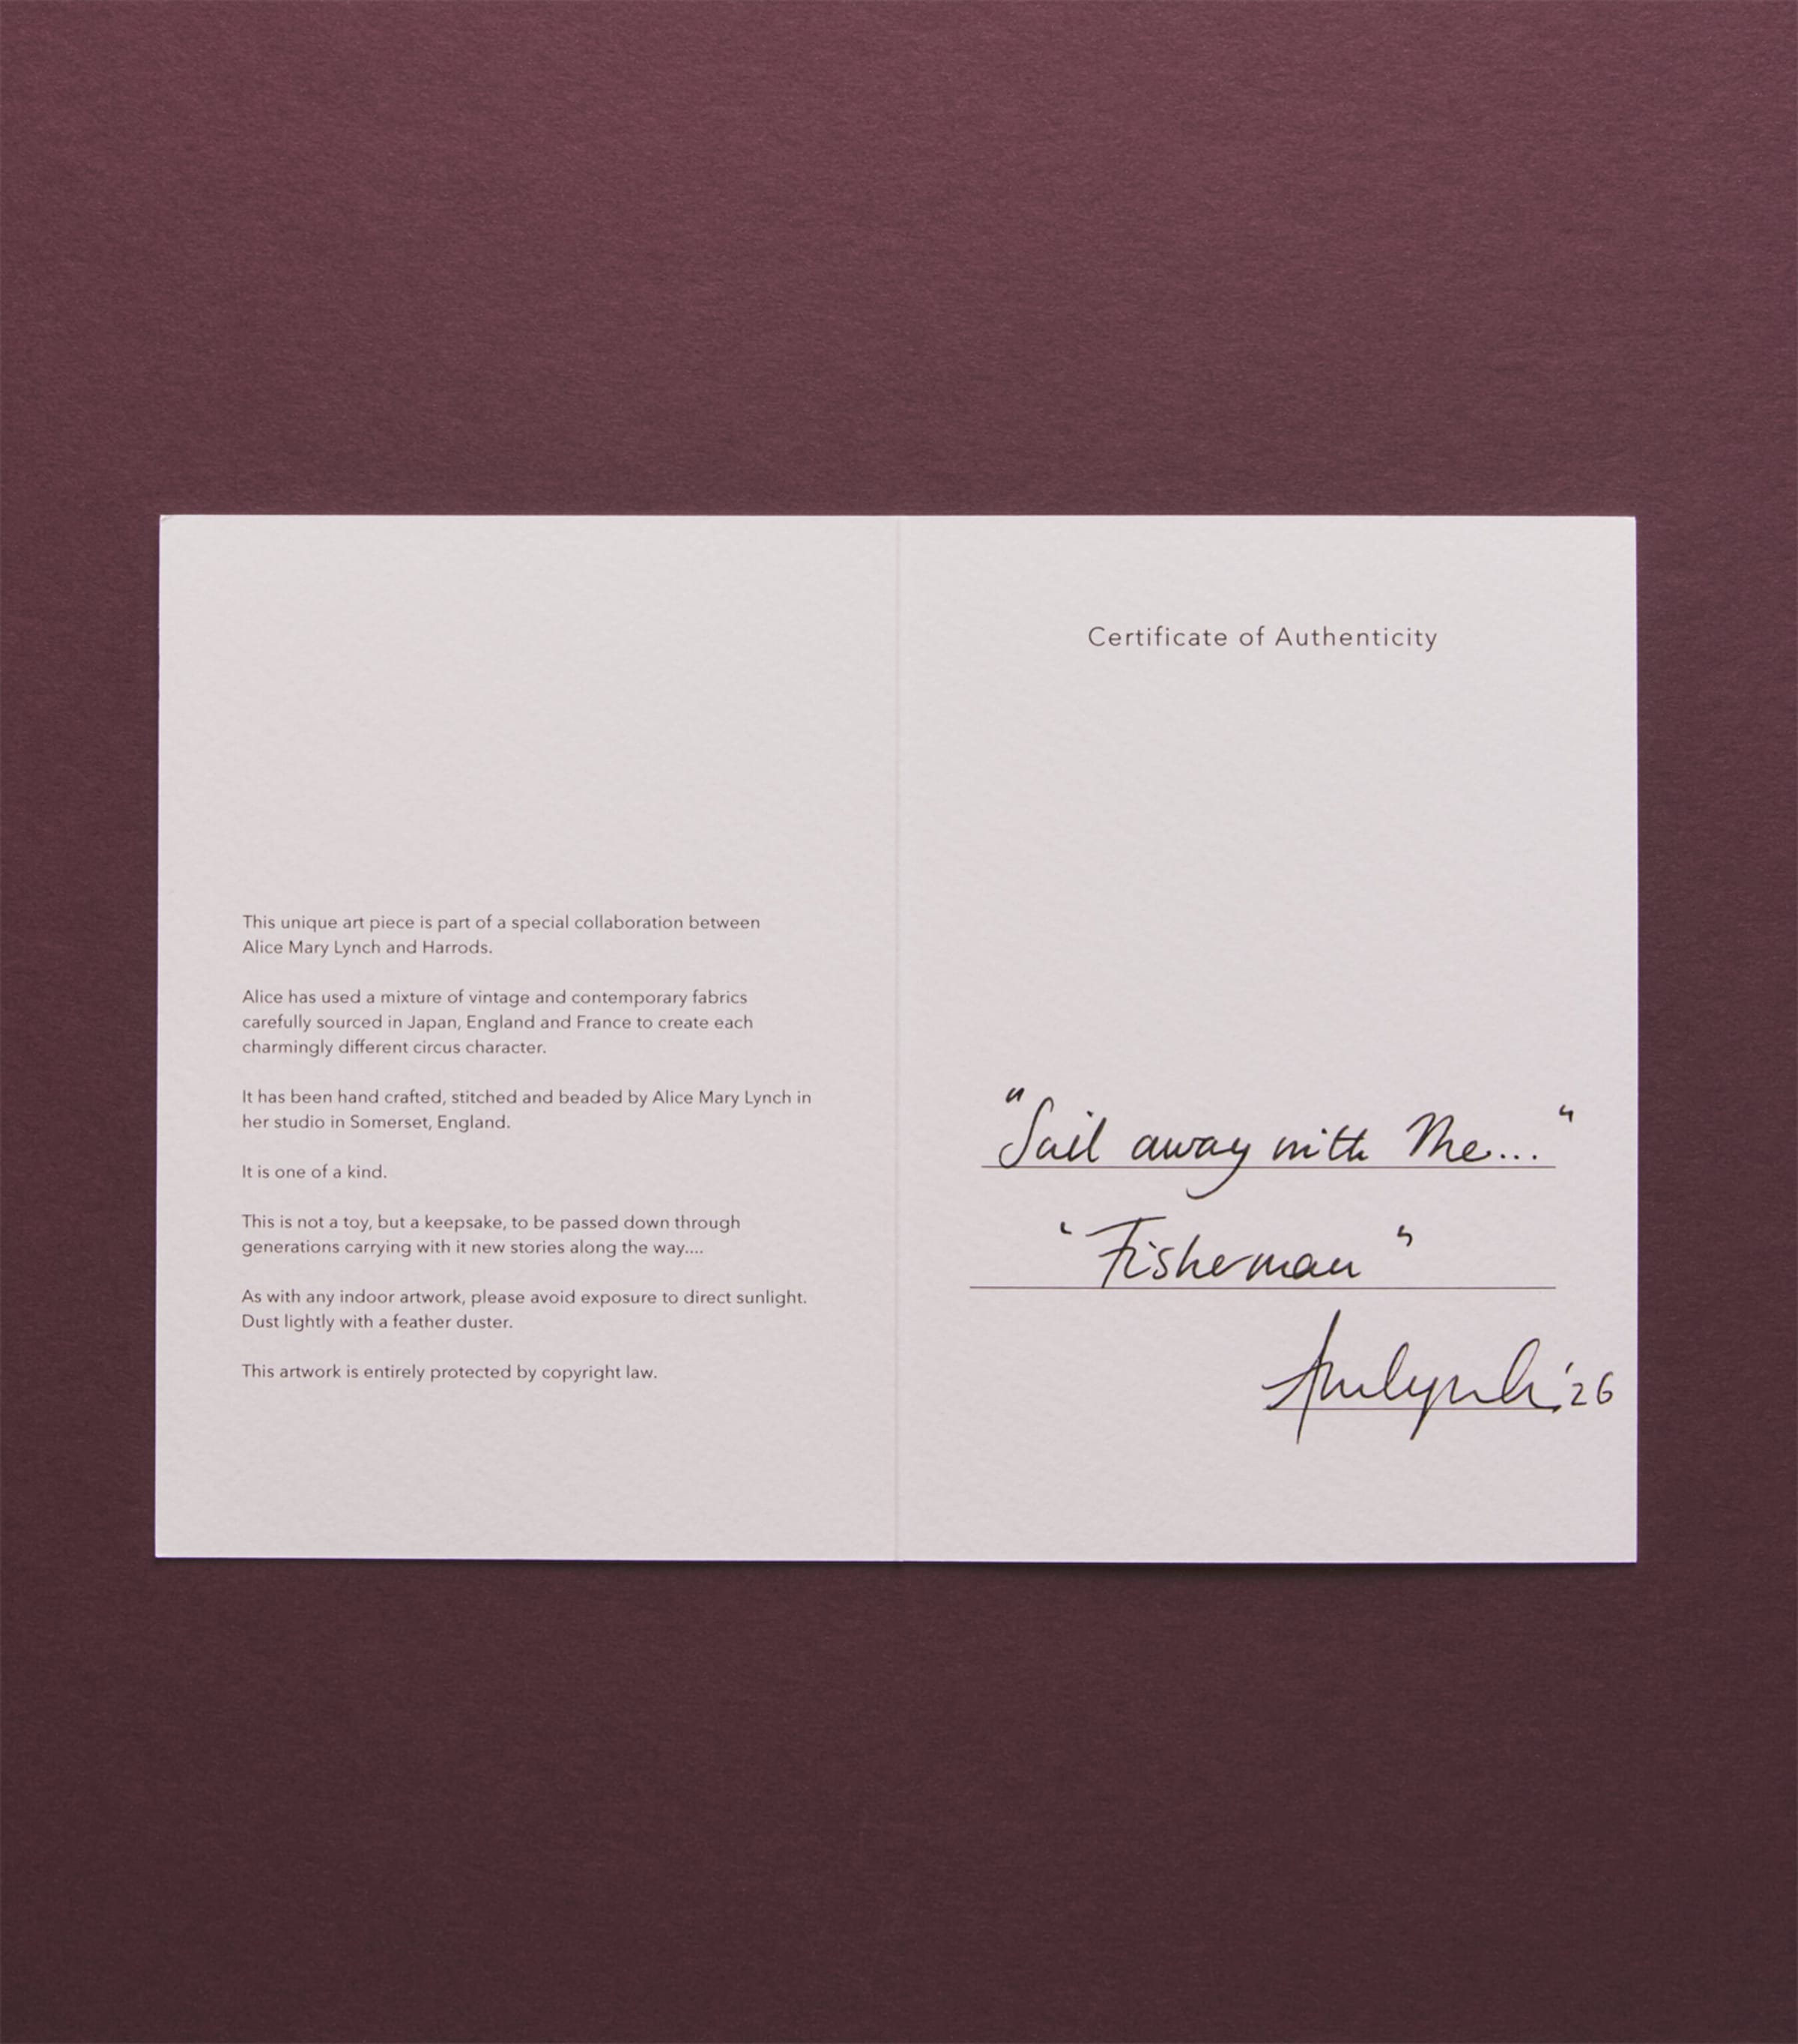 This unique art piece is part of a special collaboration between
Alice Mary Lynch and Harrods.
Alice has used a mixture of vintage and contemporary fabrics
carefully sourced in Japan, England and France to create each
charmingly different circus character.
It has been hand crafted, stitched and beaded by Alice Mary Lynch in
her studio in Somerset, England.
It is one of a kind.
This is not a toy, but a keepsake, to be passed down through
generations carrying with it new stories along the way....
As with any indoor artwork, please avoid exposure to direct sunlight.
Dust lightly with a feather duster.
This artwork is entirely protected by copyright law.
Certificate of Authenticity
"Sail away with Me..."
"Fisherman"
AMLynch '26